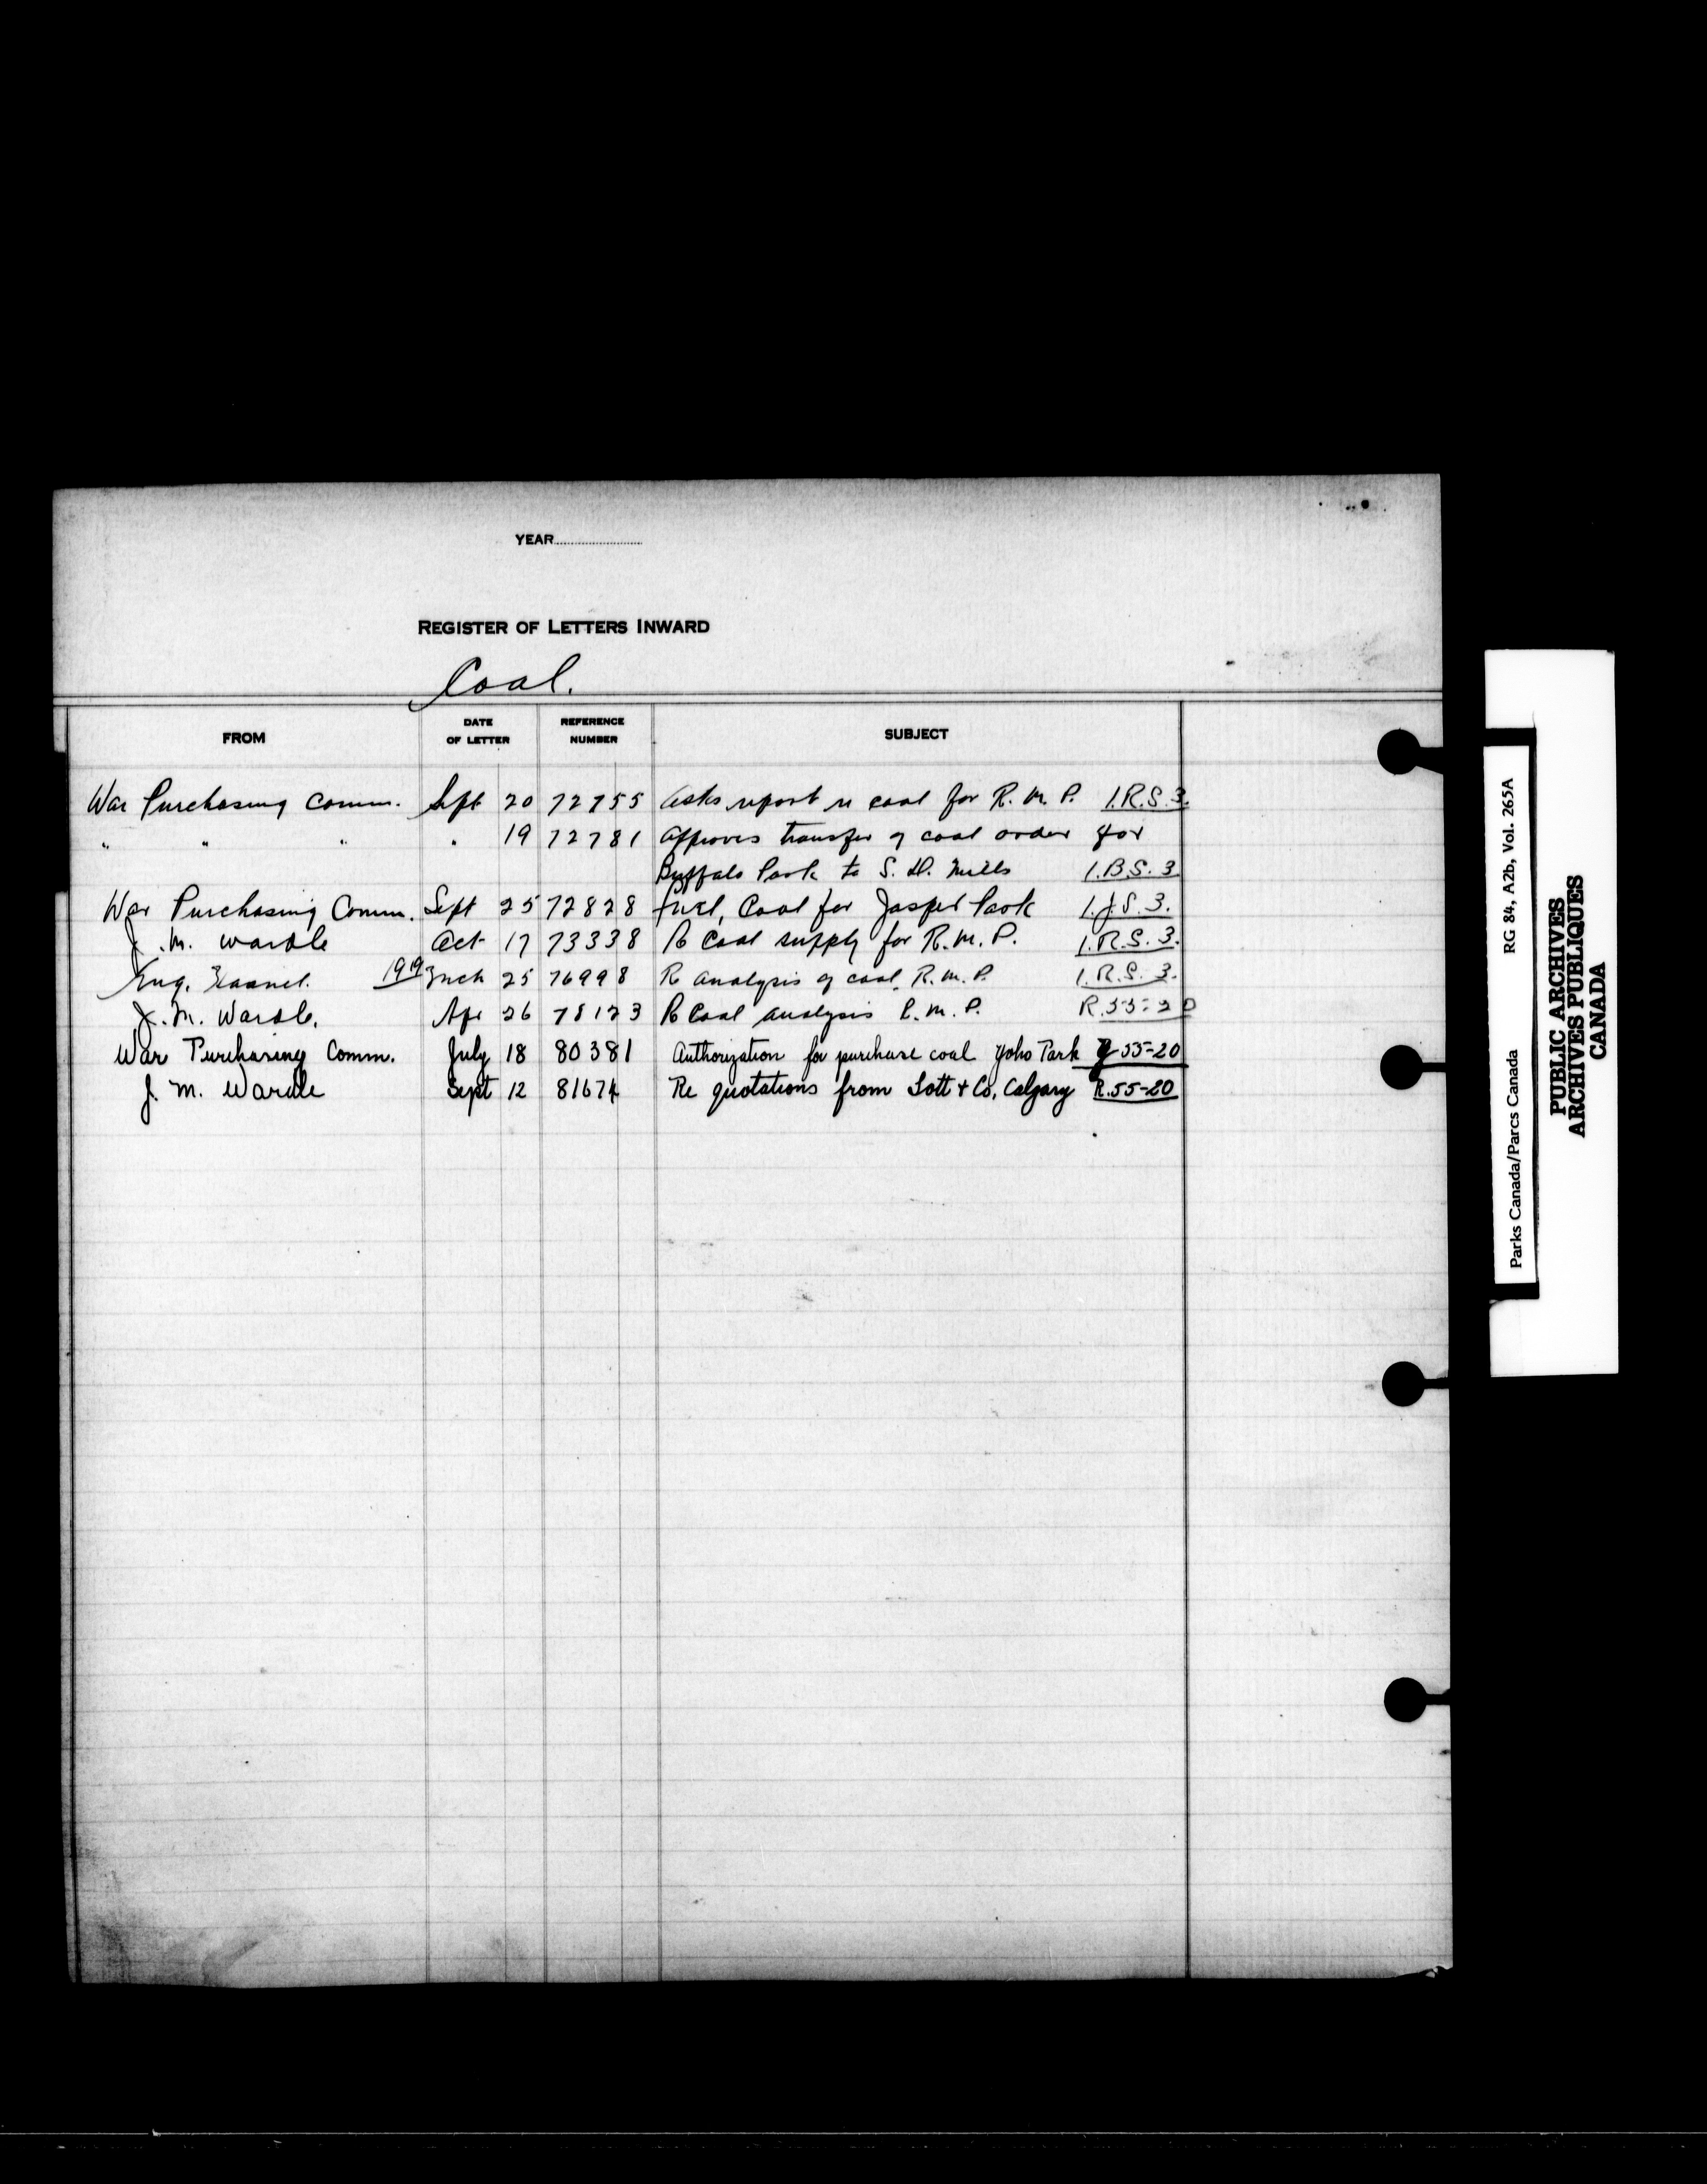 YEAR
REGISTER OF LETTERS INWARD
Coal.
FROM DATE OF LETTER REFERENCE NUMBER SUBJECT
War Purchasing Comm. Sept 20 72755 Asks report re coal for R. M. P. 1.R.S.3.
" " " " 19 72781 Approves transfer of coal order for
Buffalo Park to S. D. Mills 1.B.S.3
War Purchasing Comm. Sept 25 72828 Fuel, Coal for Jasper Park 1.J.S.3.
J. M. Wardle Oct 17 73338 Re Coal supply for R. M. P. 1.R.S.3.
Eug. 1919 Mch 25 76998 Re analysis of coal, R. M. P. 1.R.S.3.
J. M. Wardle. Apr 26 78123 Re Coal analysis R. M. P. R.55-20
War Purchasing Comm. July 18 80381 Authorization for purchase coal Yoho Park Y-55-20
J. M. Wardle Sept 12 81674 Re quotations from Lott & Co, Calgary R.55-20
Parks Canada/Parcs Canada RG 84, A2b, Vol. 265A
PUBLIC ARCHIVES
ARCHIVES PUBLIQUES
CANADA